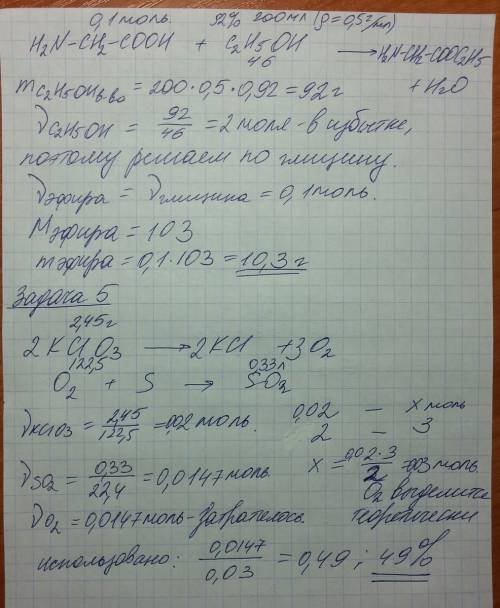 0,1моль. 92% 200мл (ρ = 0,5г/мл)
H₂N-CH₂-COOH + C₂H₅OH → H₂N-CH₂-COOC₂H₅
46
+ H₂O
mC₂H₅OH в-ва = 200·0,5·0,92 = 92г
νC₂H₅OH = 92/46 = 2 моля - в избытке,
поэтому решаем по глицину.
νэфира = νглицина = 0,1моль.
Mэфира = 103
mэфира = 0,1·103 = 10,3г
Задача 5
2,45г
2KClO₃ → 2KCl + 3O₂
122,5 0,33л
O₂ + S → SO₂
νKClO₃ = 2,45/122,5 = 0,02 моль.
0,02 — x моль
2 — 3
νSO₂ = 0,33/22,4 = 0,0147моль.
x = 0,02·3/2 = 0,03 моль.
O₂ выделится
теоретически
νO₂ = 0,0147моль - затратилось.
использовано: 0,0147/0,03 = 0,49; 49%